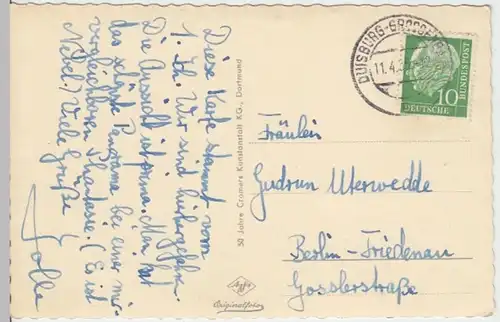 Diese Karte stammt vom
1. Ch. Wir sind hierhergefahren.
Die Aussicht ist prima. Man hat
das schönste Panorama bei einer
vergleichbaren Phantasie. (Es ist
Nebel) Viele Grüße!
50 Jahre Cramers Kunstanstalt KG., Dortmund
Agfa
Originalfoto
DUISBURG-GROSSE
11.4.
10
DEUTSCHE
BUNDESPOST
Fräulein
Gudrun Uterwedde
Berlin-Friedenau
Gosslerstraße